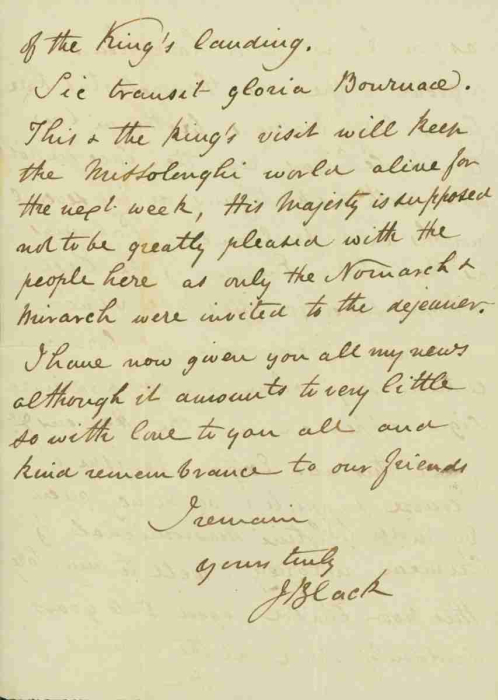 of the King's landing.
Sic transit gloria Bournace.
This & the King's visit will keep
the Missolonghi world alive for
the next week, His Majesty is supposed
not to be greatly pleased with the
people here as only the Nomarch &
Mirarch were invited to the dejeuner.
I have now given you all my news
although it amounts to very little
so with love to you all and
kind remembrance to our friends
I remain
yours truly
J Black